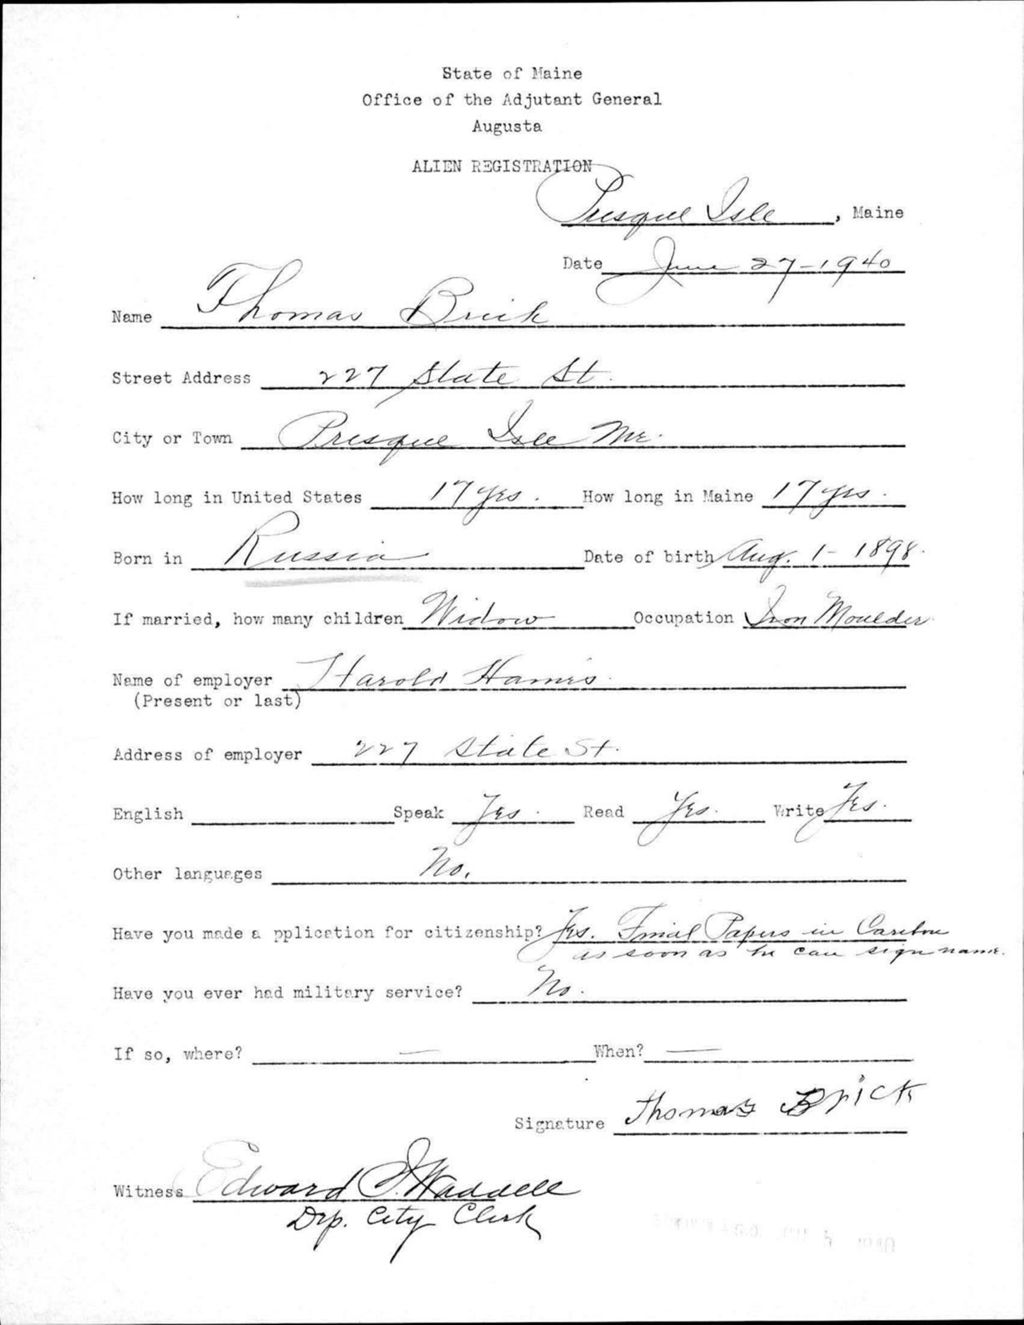 State of Maine
Office of the Adjutant General
Augusta
ALIEN REGISTRATION
Presque Isle, Maine
Date June 27-1940
Name Thomas Brick
Street Address 227 State St.
City or Town Presque Isle Me.
How long in United States 17 yrs. How long in Maine 17 yrs.
Born in Russia Date of birth Aug. 1- 1898.
If married, how many children Widow Occupation Iron Moulder
Name of employer Harold
(Present or last)
Address of employer 227 State St.
English Speak Yes. Read Yes. Write Yes.
Other languages No.
Have you made a pplication for citizenship? Yes. Final Papers in Caribou
as soon as he can sign name.
Have you ever had military service? No.
If so, where? — When? —
Signature Thomas Brick
Witness Edward J. Waddell
Dep. City Clerk